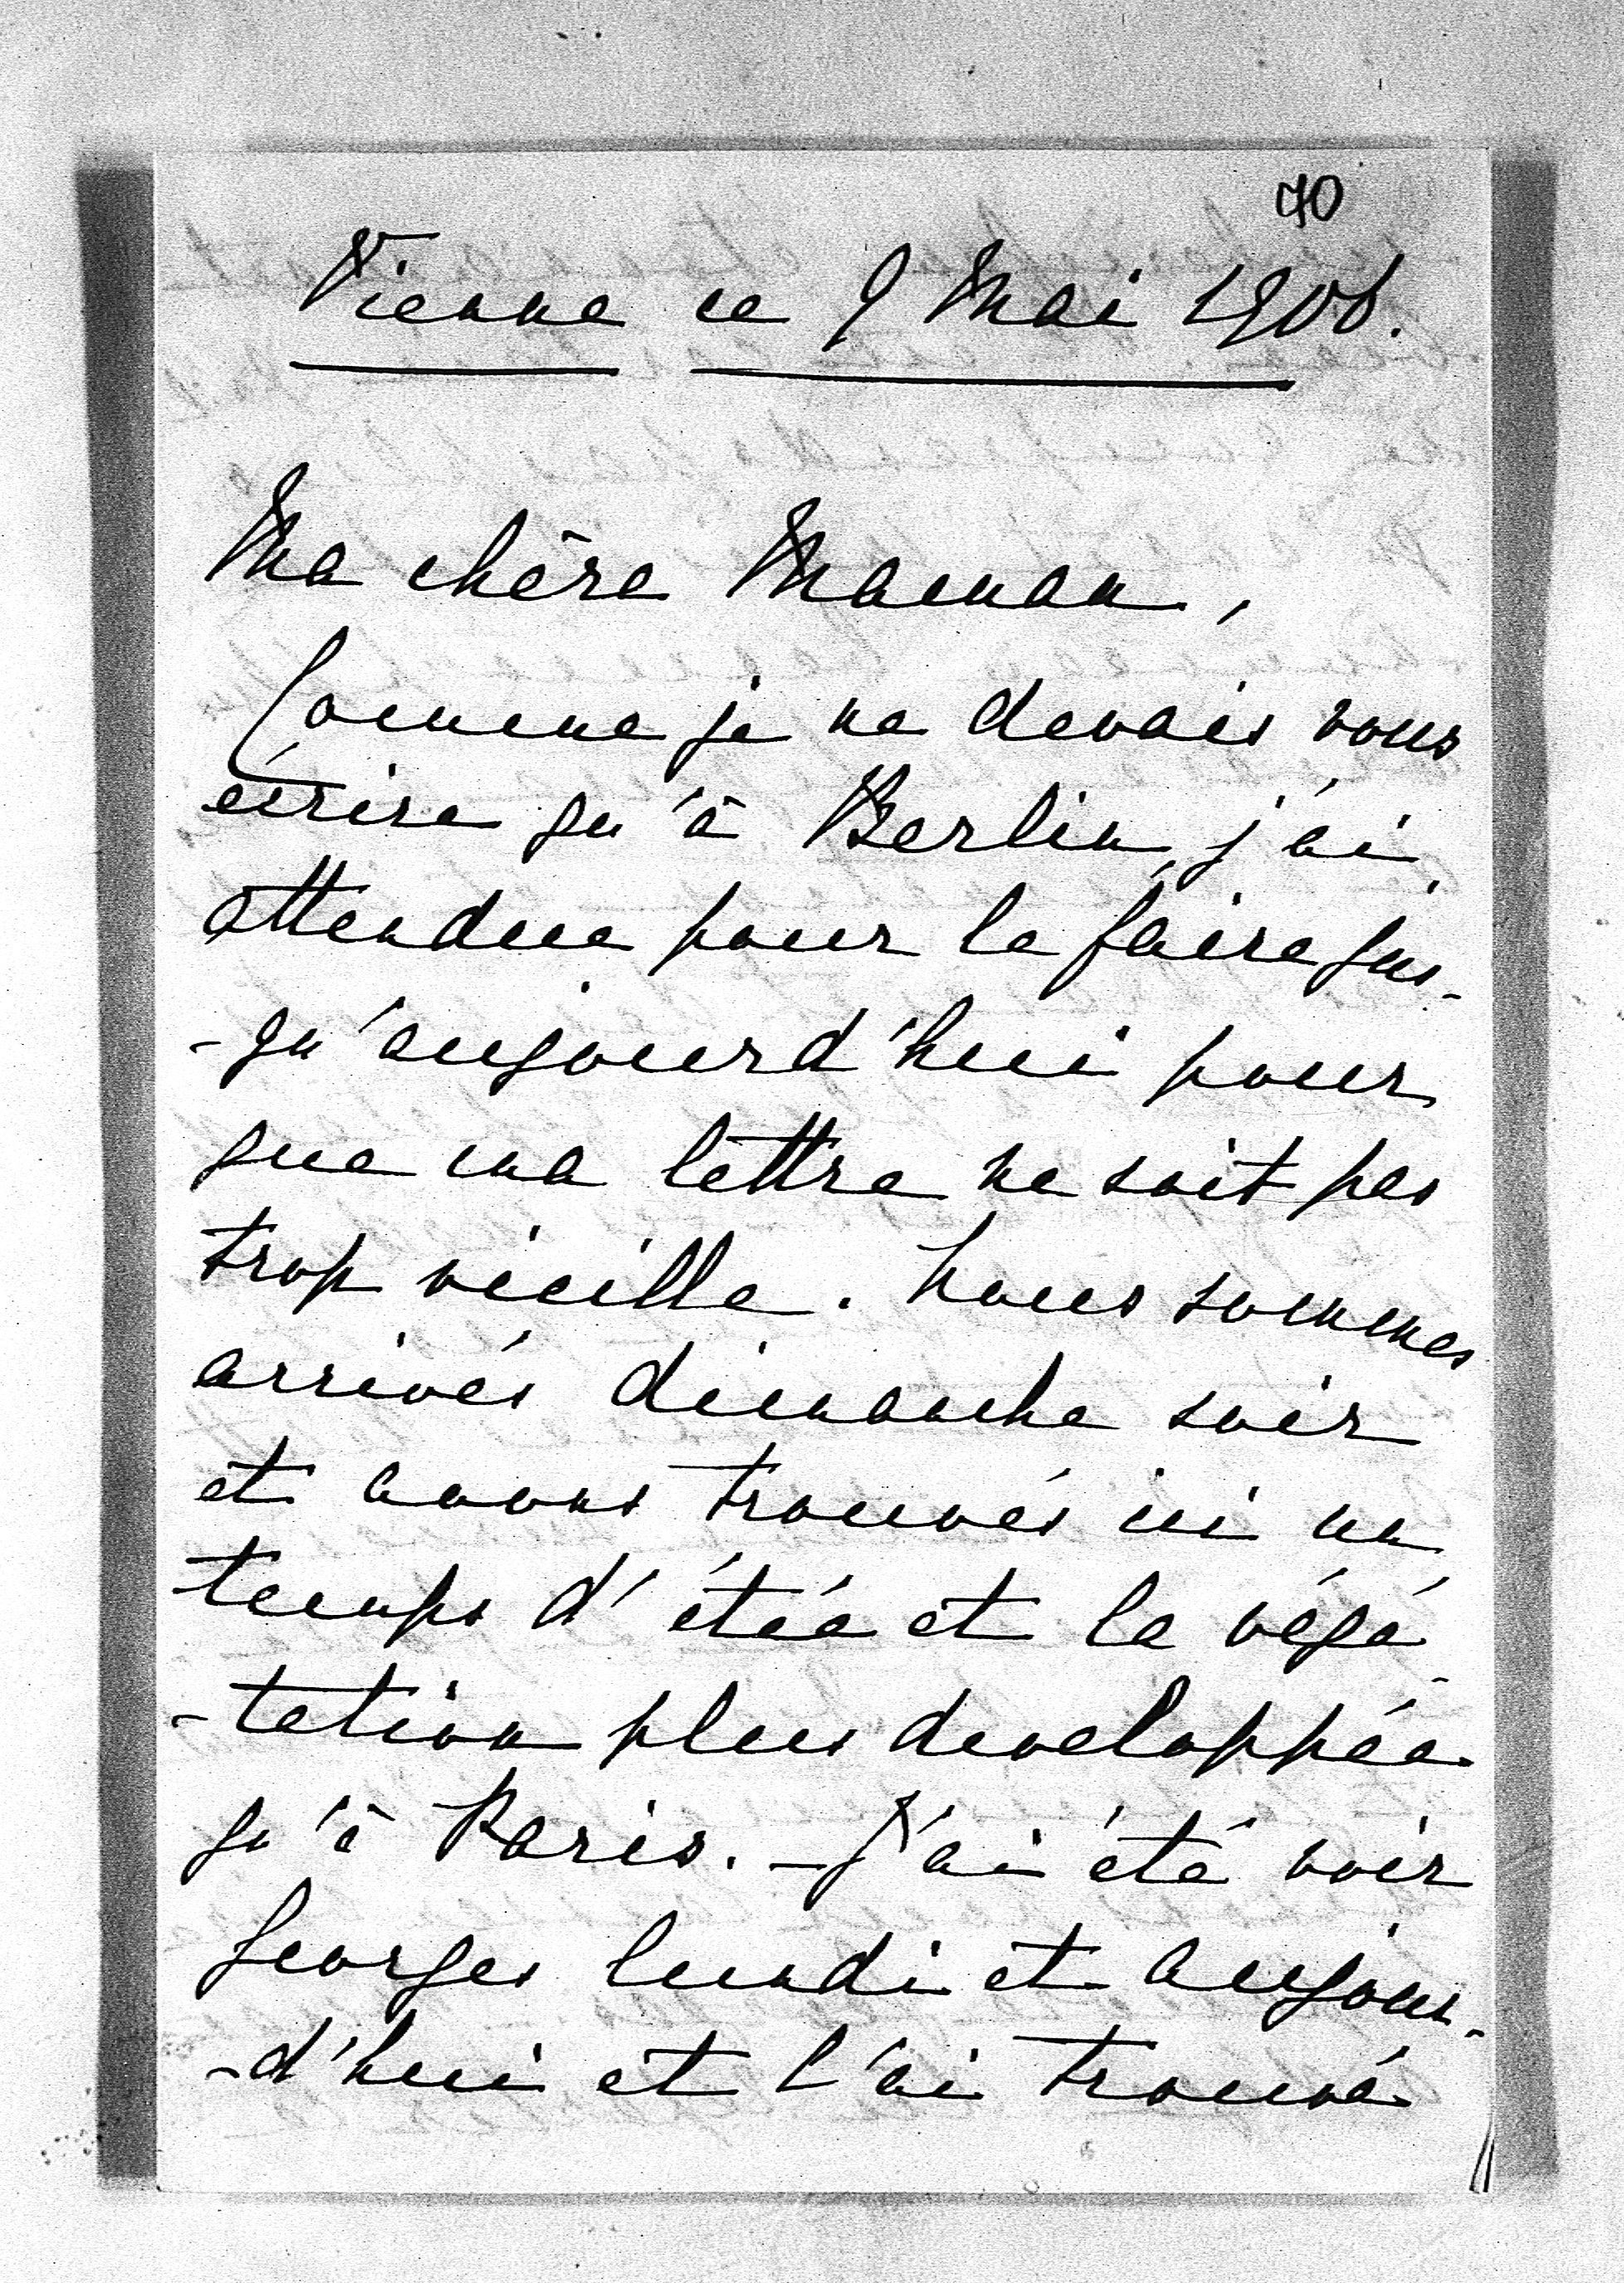 70
Vienne ce 9 Mai 1906.
Ma chère Maman,
Comme je ne devais vous
écrire qu'à Berlin, j'ai
attendue pour le faire jus-
-qu'aujourd'hui pour
que ma lettre ne soit pas
trop vieille. Nous sommes
arrivés dimanche soir
et avons trouvés ici un
temps d'étée et la végé-
-tation plus developpée
qu'à Paris. - J'ai été voir
Georges lundi et aujour-
-d'hui et l'ai trouvé